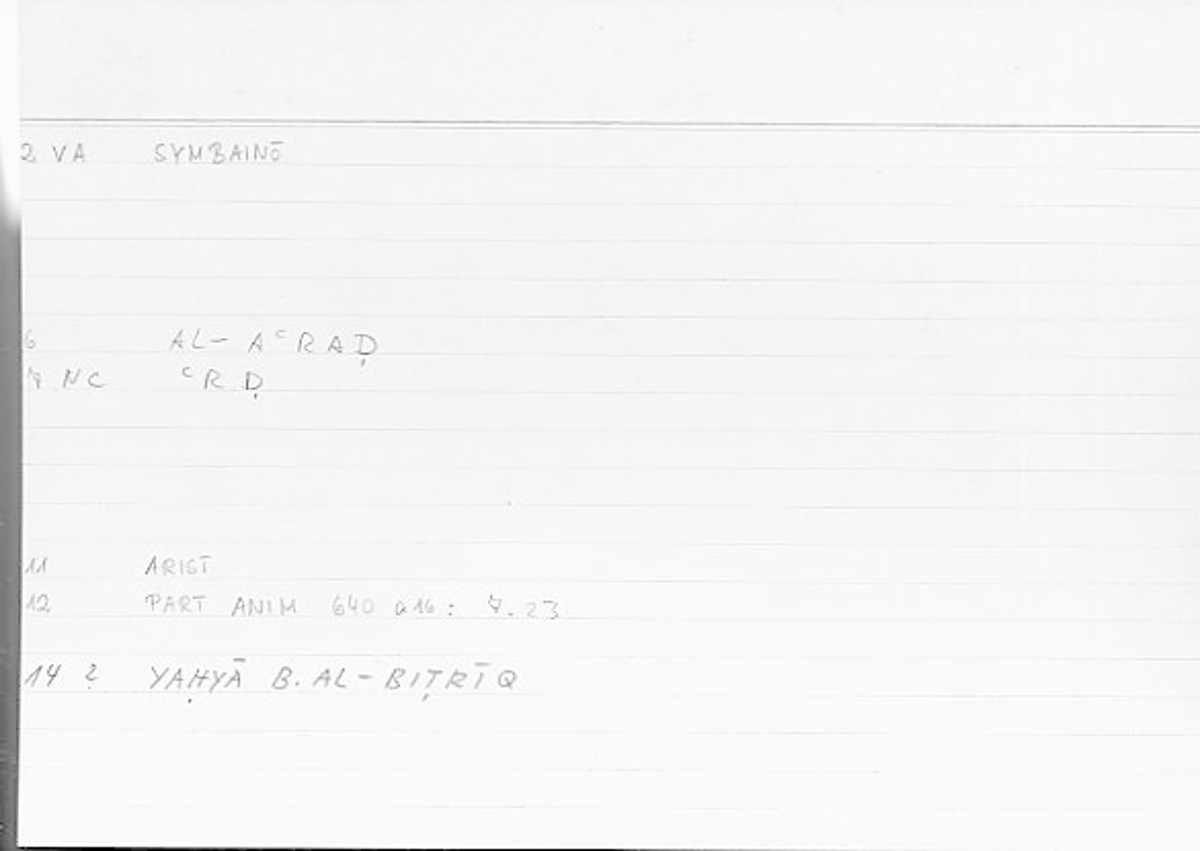 2 VA SYMBAINŌ
6 AL- AᶜRAḌ
7 NC ᶜRḌ
11 ARIST
12 PART ANIM 640 a16: 7.23
14 ? YAḤYĀ B. AL-BIṬRĪQ